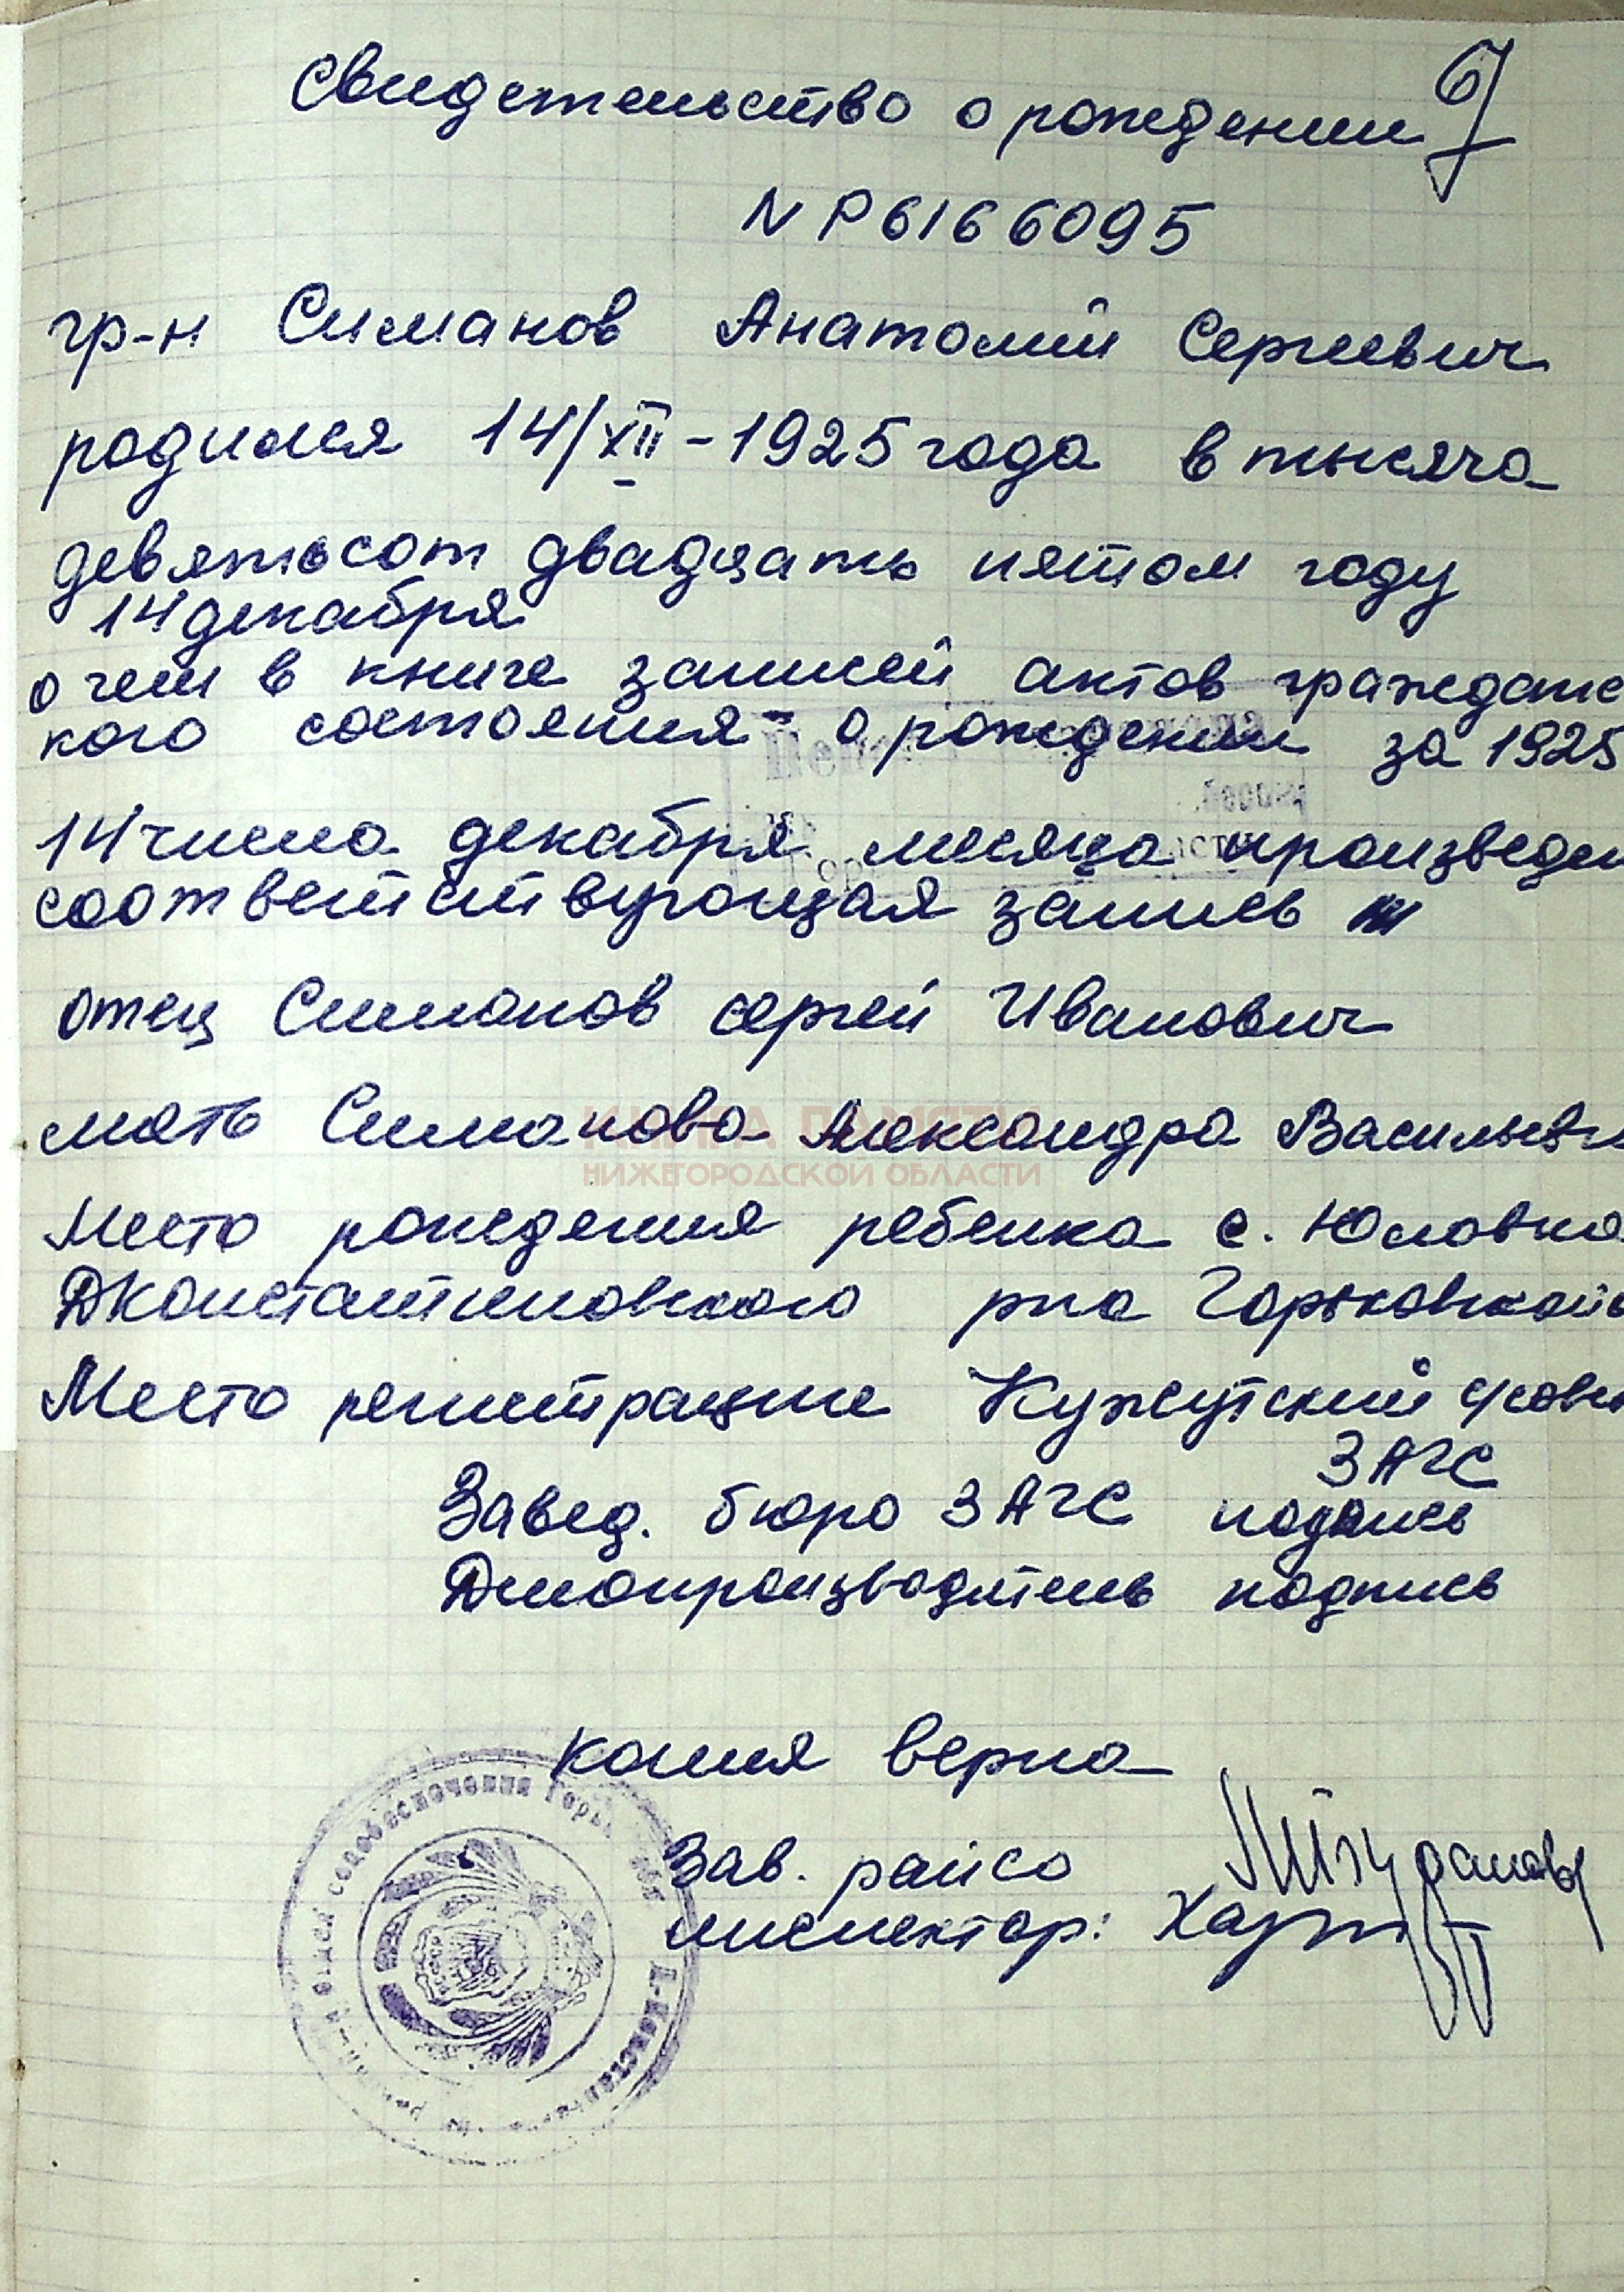 6
Свидетельство о рождении
N Р6166095
гр-н Симанов Анатолий Сергеевич
родился 14/XII-1925 года в тысяча
девятьсот двадцать пятом году
14 декабря
о чем в книге записей актов гражданс
кого состояния о рождении за 1925
14 числа декабря месяца произведен
соответствующая запись
отец Симанов Сергей Иванович
мать Симанова Александра Васильевн
КНИГА ПАМЯТИ
НИЖЕГОРОДСКОЙ ОБЛАСТИ
Место рождения ребенка с. Юловка
ДКонстантиновского рна Горьковской
Место регистрации
ЗАГС
Завед. бюро ЗАГС подпись
Делопроизводитель подпись
копия верна
Зав. райсо
инспектор:
отдел соцобеспечения